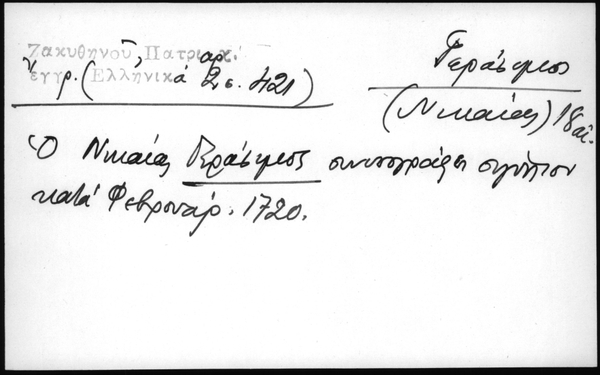 Ζακυθηνοῦ, Πατριαρχ.
ἔγγρ. (Ἑλληνικά 2 σ. 421)
Γεράσιμος
(Νικαίας) 18 αἰ.
Ὁ Νικαίας Γεράσιμος συνυπογράφει
κατά Φεβρουάρ. 1720.